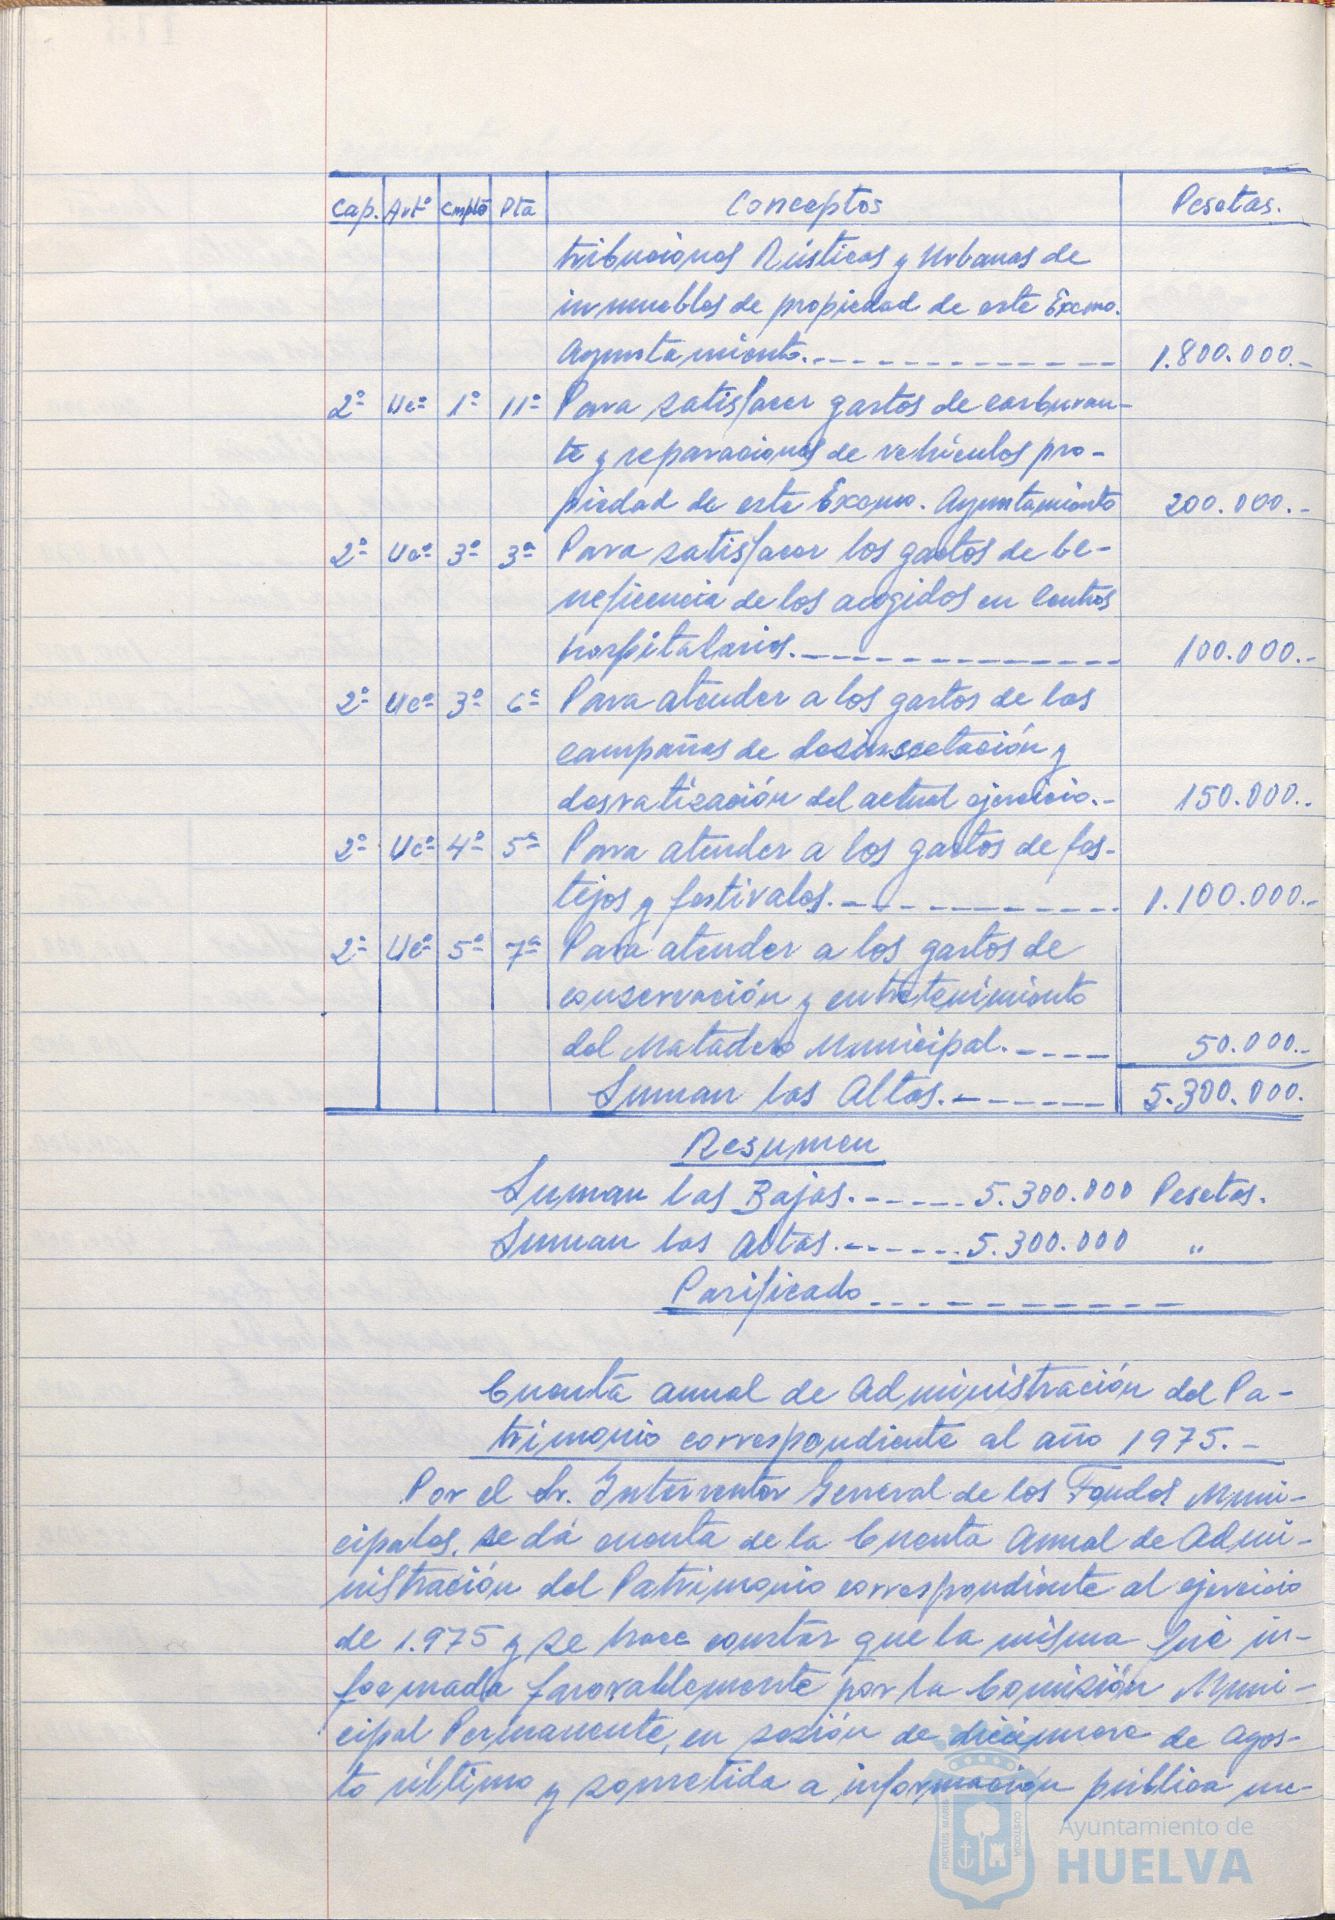 Cap. Artº Cmptº Pta Conceptos Pesetas.
tribuciones Rústicas y Urbanas de
inmuebles de propiedad de este Excmo.
Ayuntamiento. 1.800.000.-
2º Ucº 1º 11ª Para satisfacer gastos de carburan-
te y reparaciones de vehículos pro-
piedad de este Excmo. Ayuntamiento 200.000.-
2º Ucº 3º 3ª Para satisfacer los gastos de be-
neficencia de los acogidos en Centros
hospitalarios. 100.000.-
2º Ucº 3º 6ª Para atender a los gastos de las
campañas de desinsectación y
desratización del actual ejercicio.- 150.000.-
2º Ucº 4º 5ª Para atender a los gastos de fes-
tejos y festivales. 1.100.000.-
2º Ucº 5º 7ª Para atender a los gastos de
conservación y entretenimiento
del Matadero Municipal. 50.000.-
Suman las Altas. 5.300.000.
Resumen
Suman las Bajas. 5.300.000 Pesetas.
Suman las Altas. 5.300.000 "
Parificado
Cuenta anual de Administración del Pa-
trimonio correspondiente al año 1975.-
Por el Sr. Interventor General de los Fondos Muni-
cipales, se dá cuenta de la Cuenta Anual de Admi-
nistración del Patrimonio correspondiente al ejercicio
de 1.975 y se hace constar que la misma fué in-
formada favorablemente por la Comisión Muni-
cipal Permanente, en sesión de diecinueve de agos-
to último y sometida a información pública me-
PORTUS MARIS CUSTODIA
Ayuntamiento de
HUELVA